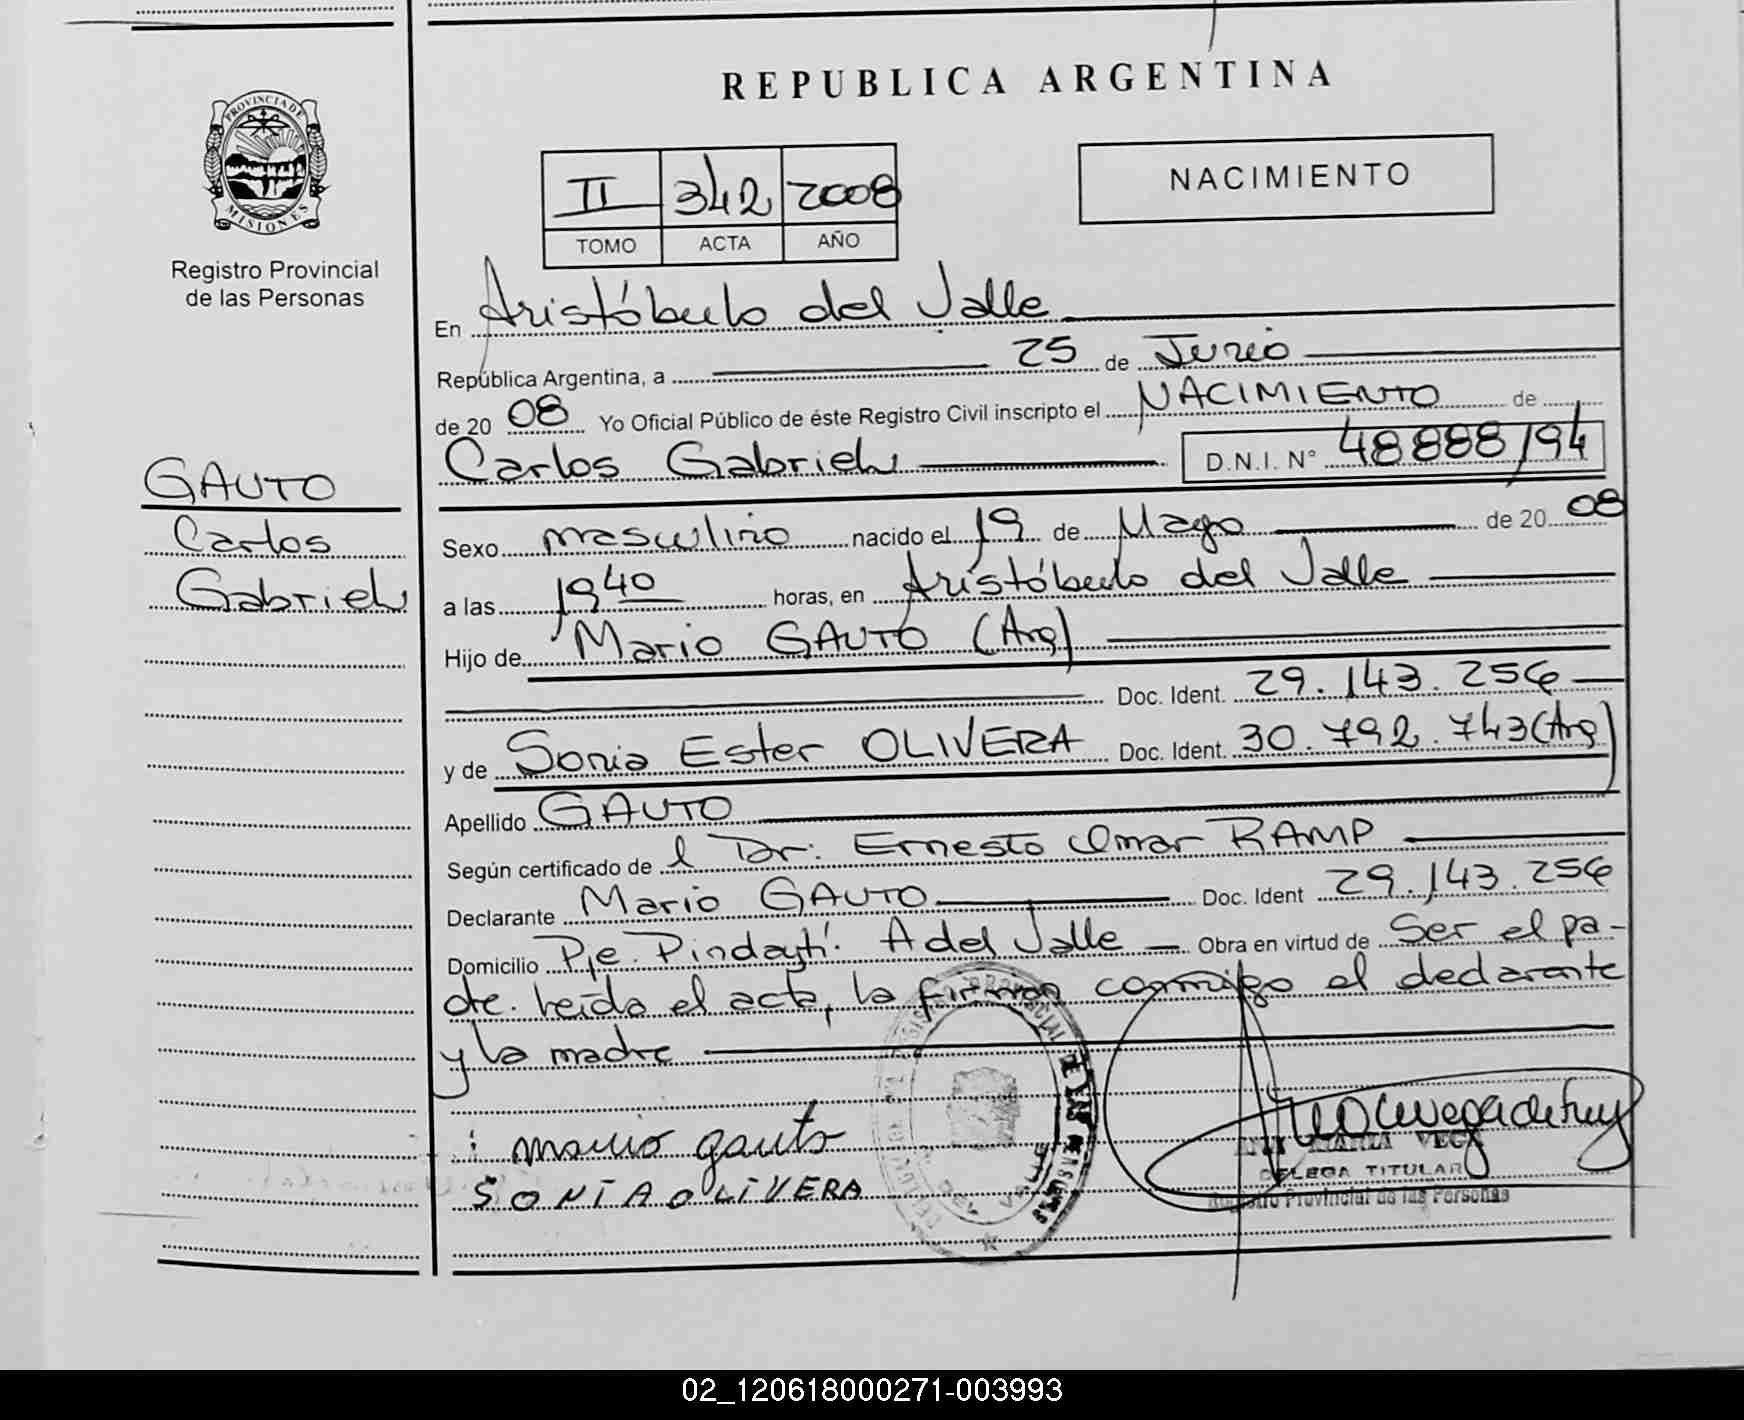 REPUBLICA ARGENTINA
PROVINCIA DE
MISIONES
Registro Provincial
de las Personas
II 342 2008
TOMO ACTA AÑO
NACIMIENTO
En Aristóbulo del Valle
República Argentina, a 25 de Junio
de 20 08 Yo Oficial Público de éste Registro Civil inscripto el NACIMIENTO de
Carlos Gabriel D.N.I. N° 48888194
GAUTO
Carlos
Gabriel
Sexo masculino nacido el 19 de Mayo de 20 08
a las 19 40 horas, en Aristóbulo del Valle
Hijo de Mario GAUTO (Arg)
Doc. Ident. 29.143.256
y de Sonia Ester OLIVERA Doc. Ident. 30.792.743 (Arg)
Apellido GAUTO
Según certificado de l Dr: Ernesto Omar RAMP
Declarante Mario GAUTO Doc. Ident 29.143.256
Domicilio Pje. Pindaytí. A del Valle Obra en virtud de Ser el pa-
dre. Leída el acta, la firman conmigo el declarante
y la madre
mario gauto
SONIA OLIVERA
VEGA
DELEGA TITULAR
Registro Provincial de las Personas
02_120618000271-003993